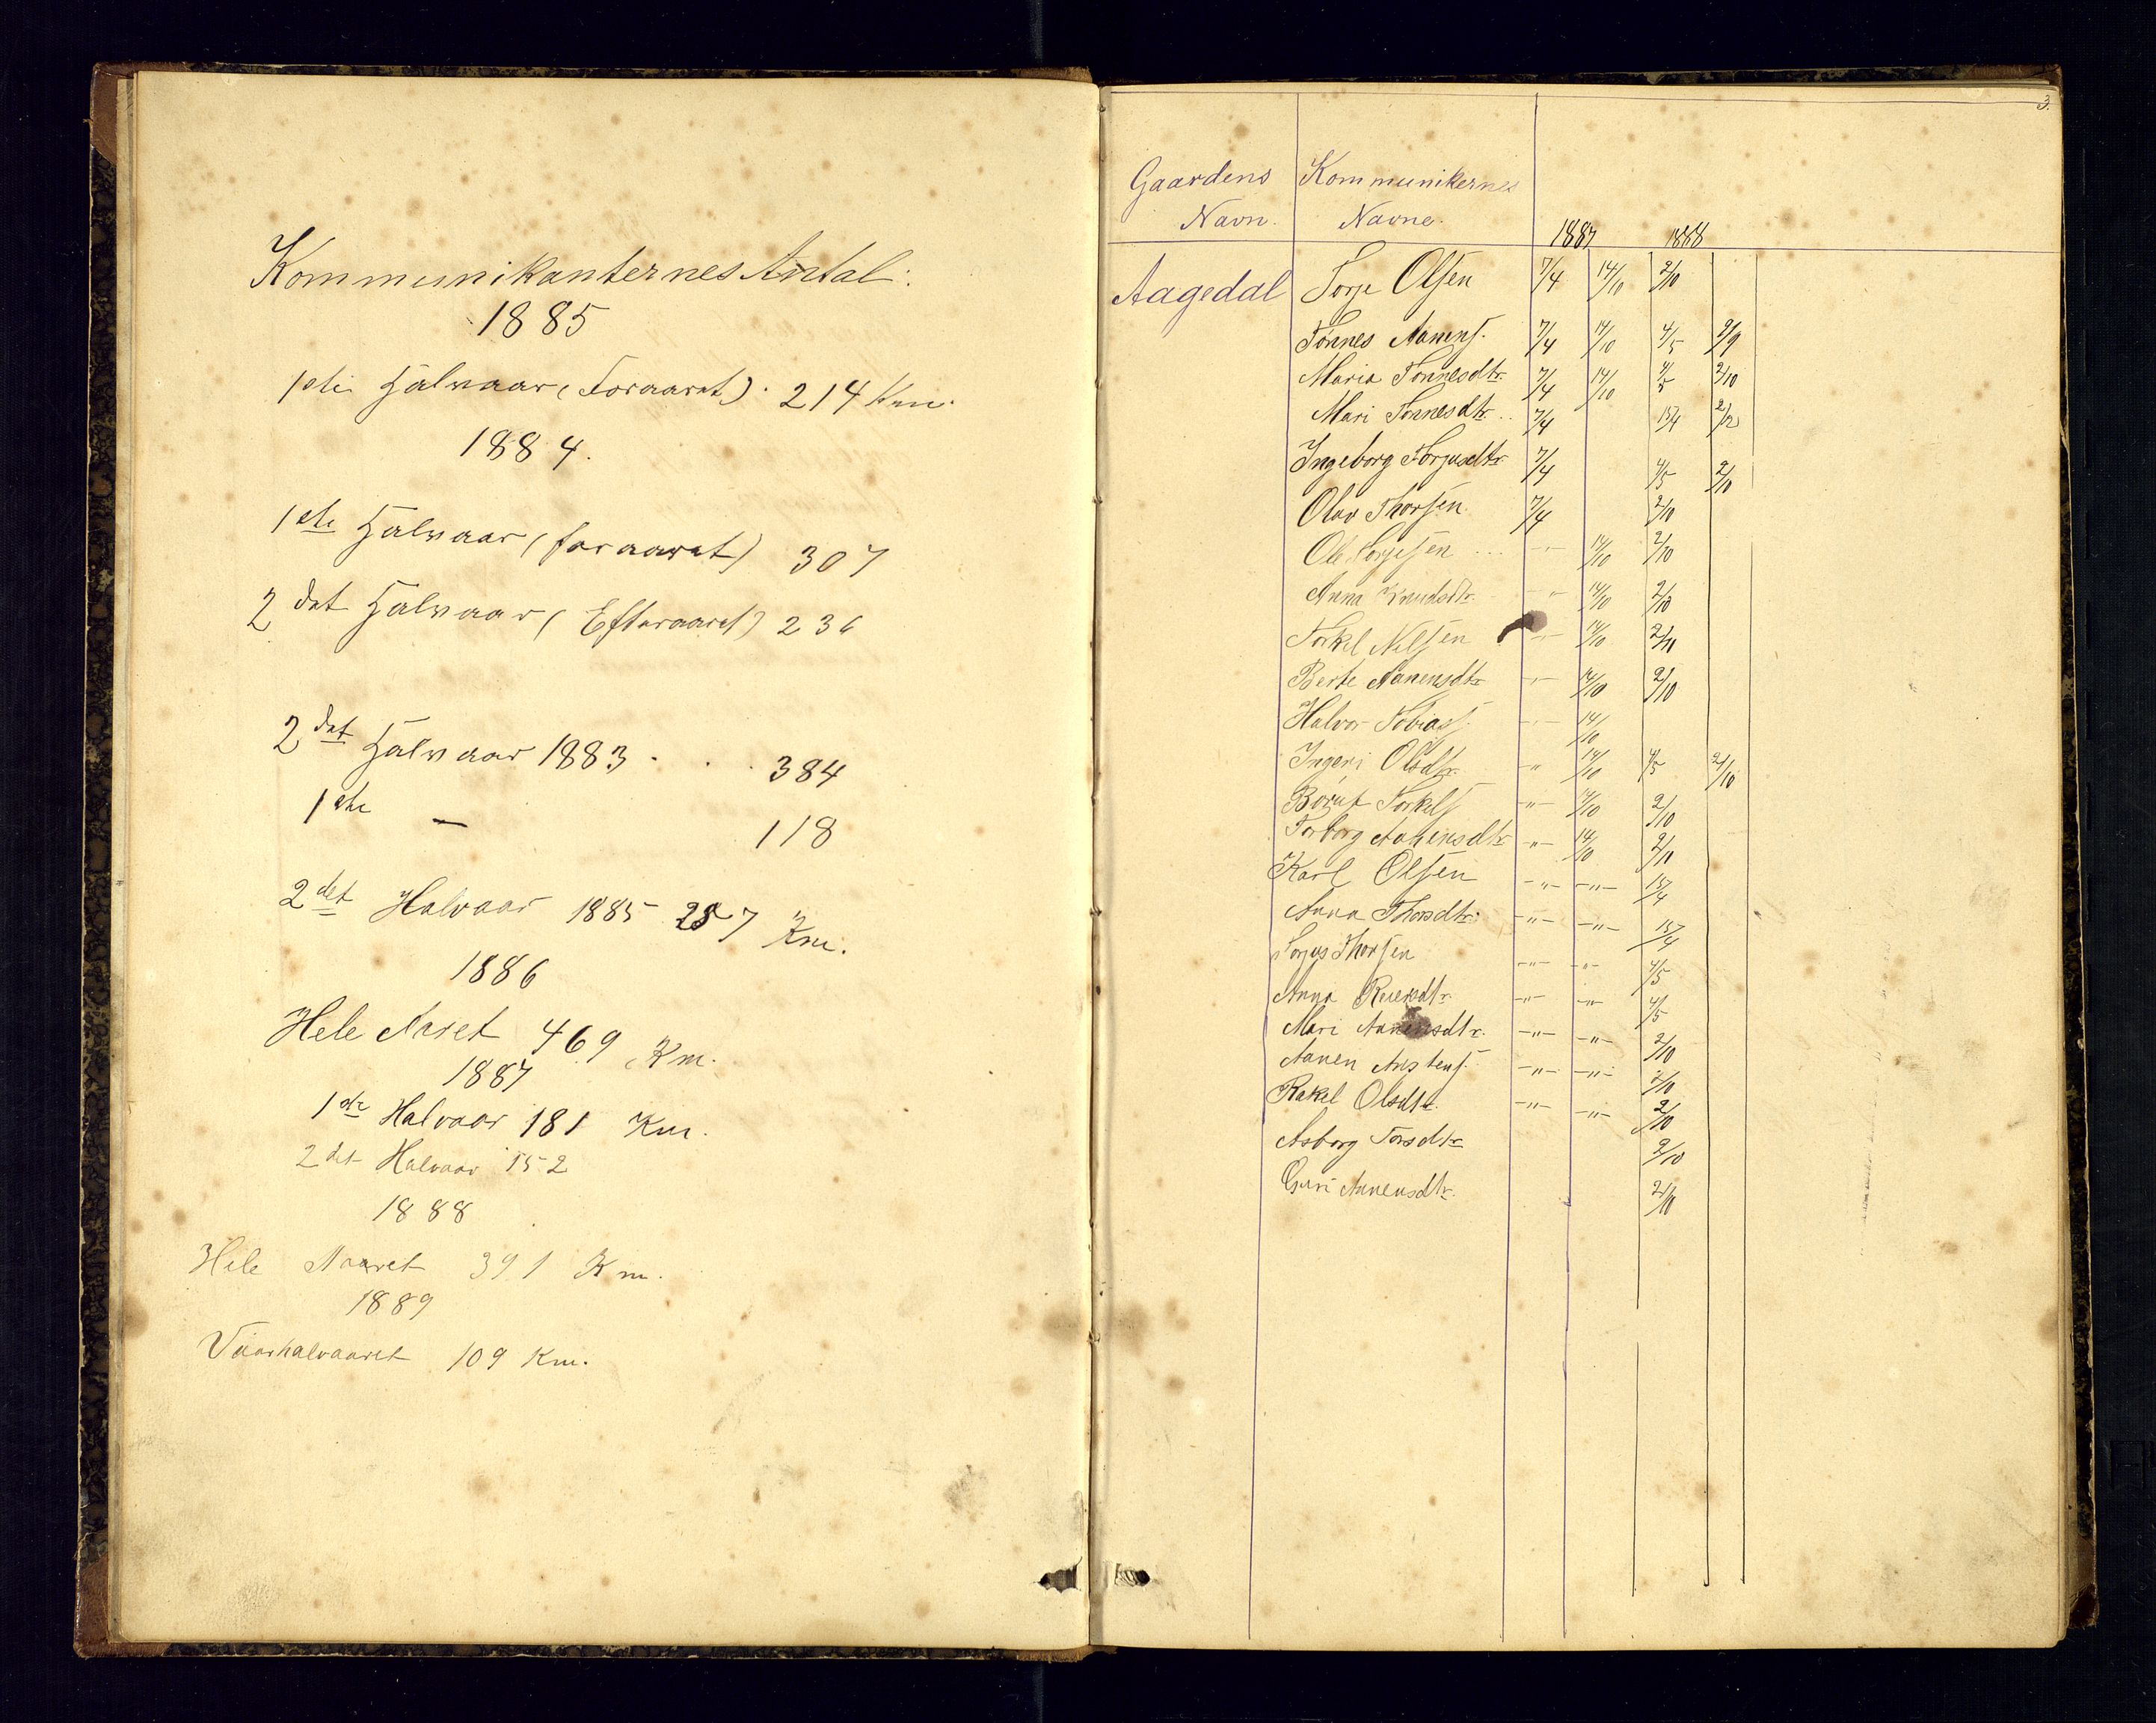 Kommunikanternes Antal:
1885
1ste Halvaar (Foraaret). 214 Km.
1884.
1ste Halvaar (foraaret) 307
2det Halvaar (Efteraaret) 236
2det Halvaar 1883 . . . 384
1ste — 118
2det Halvaar 1885 257 Km.
1886
Hele Aaret 469 Km.
1887
1ste Halvaar 181 Km.
2det Halvaar 152
1888
Hele Aaret 391 Km.
1889
Vaarhalvaaret 109 Km.
3.
Gaardens Kommunikernes
Navn. Navne. 1887 1888
Aagedal Torje Olsen 7/4 14/10 2/10
Tønnes Aanens. 7/4 14/10 4/5 2/9
Maria Tønnesdtr. 7/4 14/10 4/5 2/10
Mari Tønnesdtr. 7/4 15/4 2/12
Ingeborg Torjusdtr 7/4 4/5 2/10
Olav Thorsen 7/4 2/10
Ole Torjesen ... -"- 14/10 2/10
Anna Knudsdtr. -"- 14/10 2/10
Torkel Nilsen -"- 14/10 2/10
Berte Aanensdtr -"- 14/10 2/10
Halvor Tobiass. -"- 14/10
Ingeri Olsdtr. -" 14/10 4/5 2/10
Børut Torkels -"- 14/10 2/10
Torborg Aanensdtr -"- 14/10 2/10
Karl Olsen -"- -"- 15/4
Anna Thorsdtr. -"- -"- 15/4
Torjus Thorsen -"- -"- 4/5
Anna -"- -"- 4/5
Mari Aanensdtr. -"- -"- 2/10
Aanen Austens. -"- -"- 2/10
Rakel Olsdtr. -"- -"- 2/10
Asborg Torsdtr 2/10
Guri Aanensdtr. 2/10